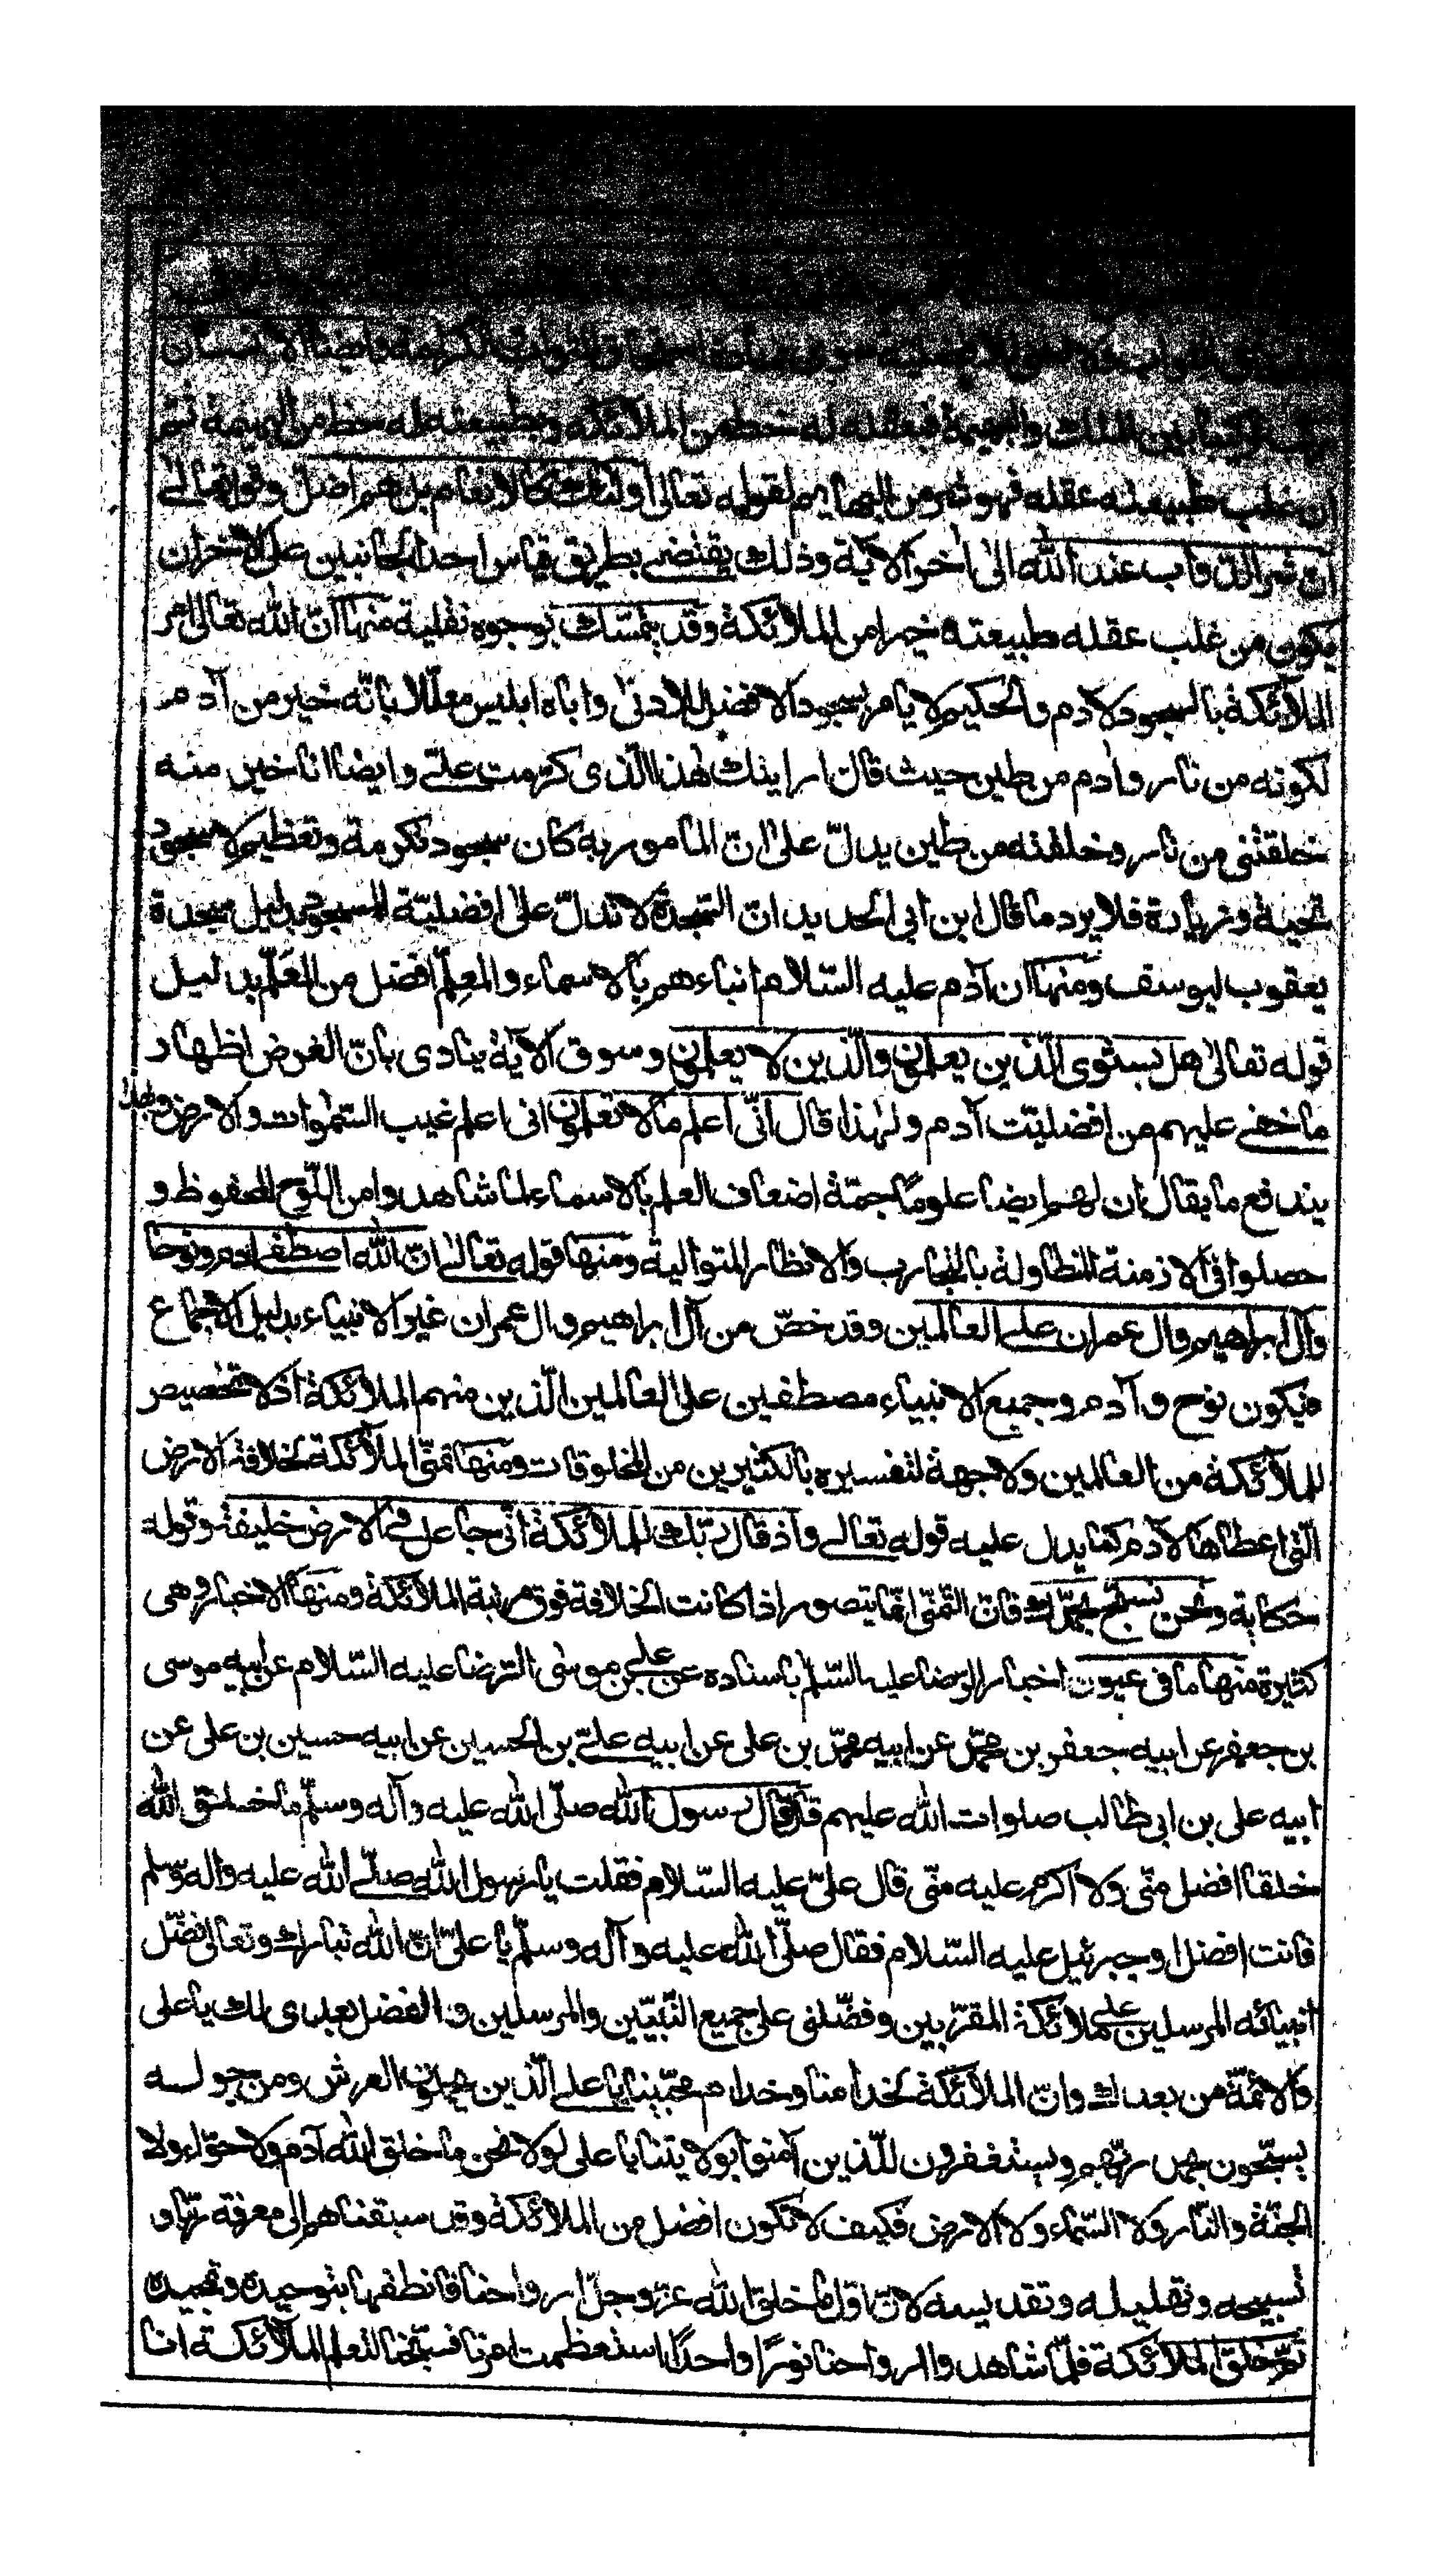 وايضا الانسان
مركب تركيبا بين الملك والبهيمة فبعقله له حظ من الملائكة وبطبيعته له حظ من البهيمة ثم
ان غلب طبيعته عقله فهو شر من البهايم لقوله تعالى اولئك كالانعام بل هم اضل وقوله تعالى
ان شر الدواب عند الله الى اخر الاية وذلك يقتضي بطريق قياس احد الجانبين على الاخر ان
يكون من غلب عقله طبيعته خيرا من الملائكة وقد يتمسك بوجوه نقلية منها ان الله تعالى امر
الملائكة بالسجود لادم والحكيم لا يامر بسجود الافضل للادنى واباه ابليس معللا بانه خير من آدم
لكونه من نار وادم من طين حيث قال ارايتك هذا الذي كرمت علي وايضا انا خير منه
خلقتني من نار وخلقته من طين يدل على ان المامور به كان سجود تكرمة وتعظيم لا سجود
تحية وزيارة فلا يرد ما قال ابن ابي الحديد ان السجدة لا تدل على افضلية المسجود بدليل سجدة
يعقوب ليوسف ومنها ان آدم عليه السلام انباءهم بالاسماء والمعلم افضل من المعلم بدليل
قوله تعالى هل يستوى الذين يعلمون والذين لا يعلمون وسوق الاية ينادى بان الغرض اظهار
ما خفي عليهم من افضليت آدم ولهذا قال اني اعلم ما لا تعلمون انى اعلم غيب السموات والارض وبهذا
يندفع ما يقال ان لهم ايضا علوما جمة اضعاف العلم بالاسماء لما شاهدوا من اللوح المحفوظ و
حصلوا في الازمنة المتطاولة بالتجارب والانظار المتوالية ومنها قوله تعالى ان الله اصطفى ادم ونوحا
وآل ابراهيم وال عمران على العالمين وقد خص من آل ابراهيم وال عمران غير الانبياء بدليل الاجماع
فيكون نوح وآدم وجميع الانبياء مصطفين على العالمين الذين منهم الملائكة اذ لا تخصيص
للملائكة من العالمين ولا جهة لتفسيره بالكثيرين من المخلوقات ومنها تمنى الملائكة لخلافة الارض
التى اعطاها لآدم كما يدل عليه قوله تعالى واذ قال ربك للملائكة انى جاعل في الارض خليفة وقوله
حكاية ونحن نسبح بحمدك فان التمنى انما يتصور اذا كانت الخلافة فوق مرتبة الملائكة ومنها الاخبار وهى
كثيرة منها ما فى عيون اخبار الرضا عليه السلم باسناده عن علي بن موسى الرضا عليه السلام عن ابيه موسى
بن جعفر عن ابيه جعفر بن محمد عن ابيه محمد بن على عن ابيه علي بن الحسين عن ابيه حسين بن على عن
ابيه على بن ابى طالب صلوات الله عليهم قال قال رسول الله صلى الله عليه وآله وسلم ما خلق الله
خلقا افضل منى ولا اكرم عليه منى قال علي عليه السلام فقلت يا رسول الله صلى الله عليه واله وسلم
فانت افضل او جبرئيل عليه السلام فقال صلى الله عليه وآله وسلم يا على ان الله تبارك وتعالى فضل
انبيائه المرسلين على ملائكة المقربين وفضلنى على جميع النبيين والمرسلين والفضل بعدى لك يا على
والائمة من بعدك وان الملائكة لخدامنا وخدام محبينا يا على الذين يحملون العرش ومن حوله
يسبحون بحمد ربهم ويستغفرون للذين آمنوا بولايتنا يا على لولا نحن ما خلق الله آدم ولا حواء ولا
الجنة والنار ولا السماء ولا الارض فكيف لا نكون افضل من الملائكة وقد سبقناهم الى معرفة ربنا و
تسبيحه وتهليله وتقديسه لان اول ما خلق الله عز وجل ارواحنا فانطقها بتوحيده وتمجيده
ثم خلق الملائكة فلما شاهدوا ارواحنا نورا واحدا استعظمت امرنا فسبحنا لتعلم الملائكة انا